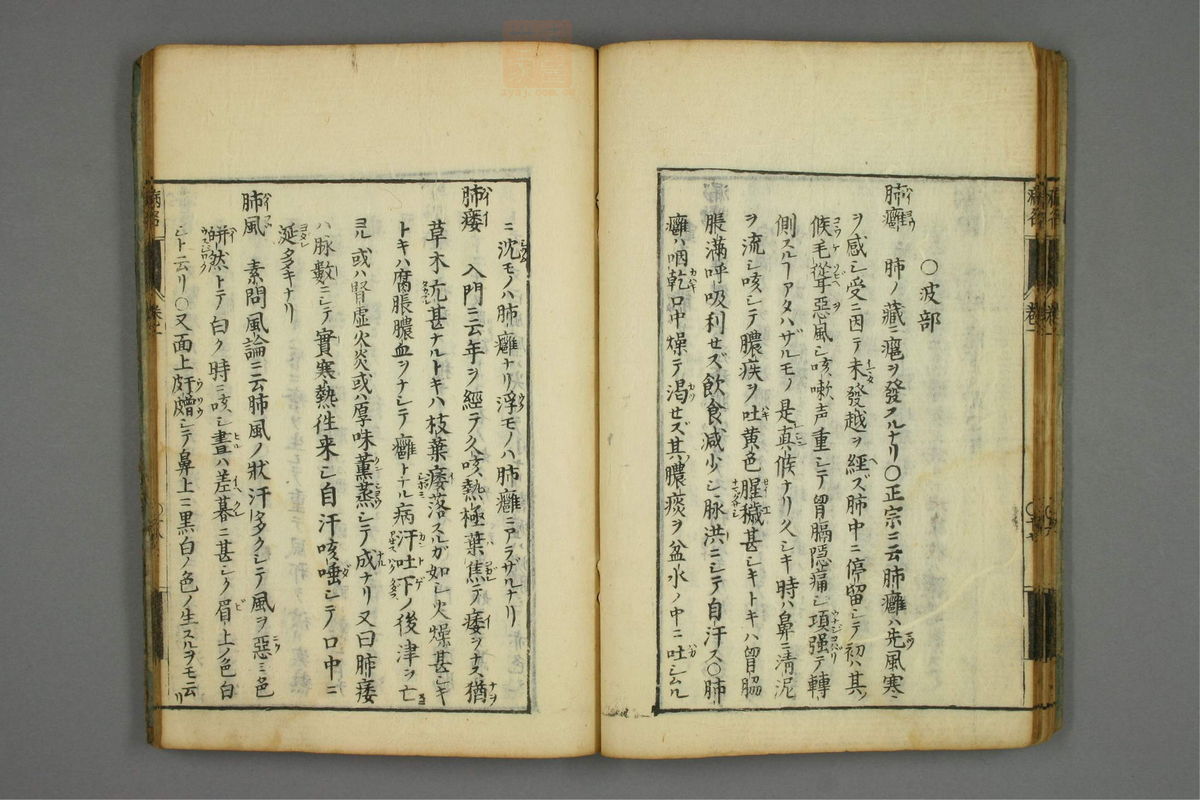 ○波部
肺癰 肺ノ藏ニ癰ヲ發スルナリ○正宗ニ云肺癰ハ先風寒ニ
ヲ感シ受ニ因テ未發越ヲ經ズ肺中ニ停留シテ初ハ其
候毛聳惡風シ咳嗽声重シテ胷膈隱痛シ項强テ轉
側スルヿアタハザルモノ是眞候ナリ久シキ時ハ鼻ニ清泥
ヲ流シ咳シテ膿痰ヲ吐黄色腥穢甚シキトキハ胷脇
脹滿呼吸利セズ飲食減少シ脉洪ニシテ自汗ス○肺
癰ハ咽乾口中燥テ渇セズ其膿痰ヲ盆水ノ中ニ吐シムル
ニ沈モノハ肺癰ナリ浮モノハ肺癰ニアラザルナリ
肺痿 入門ニ云年ヲ經テ久咳熱極葉焦テ痿ヲナス猶
草木亢甚ナルトキハ枝葉痿落スルガ如シ火燥甚シキ
トキハ腐脹膿血ヲナシテ癰トナル病汗吐下ノ後津ヲ亡
ヨル或ハ腎虚火炎或ハ厚味薫蒸シテ成ナリ又曰肺痿
ハ脉數ニシテ實寒熱徃来シ自汗咳唾シテ口中ニ
涎多キナリ
肺風 素問風論ニ云肺風ノ狀汗多クシテ風ヲ惡ミ色
皏然トテ白ク時ニ咳シ晝ハ差暮ニ甚シク眉上ノ色白
シト云リ○又面上皯䵳シテ鼻上ニ黒白ノ色ノ生スルヲモ云リ